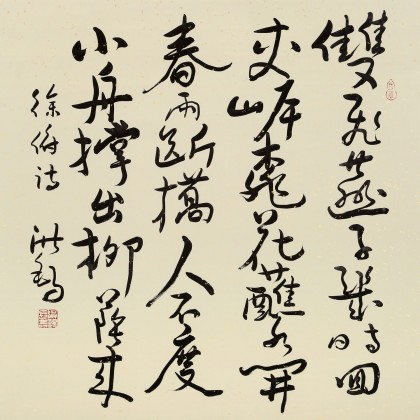 雙飛燕子幾時回
夾岸桃花蘸水開
春雨断橋人不度
小舟撑出柳蔭來
徐俯詩